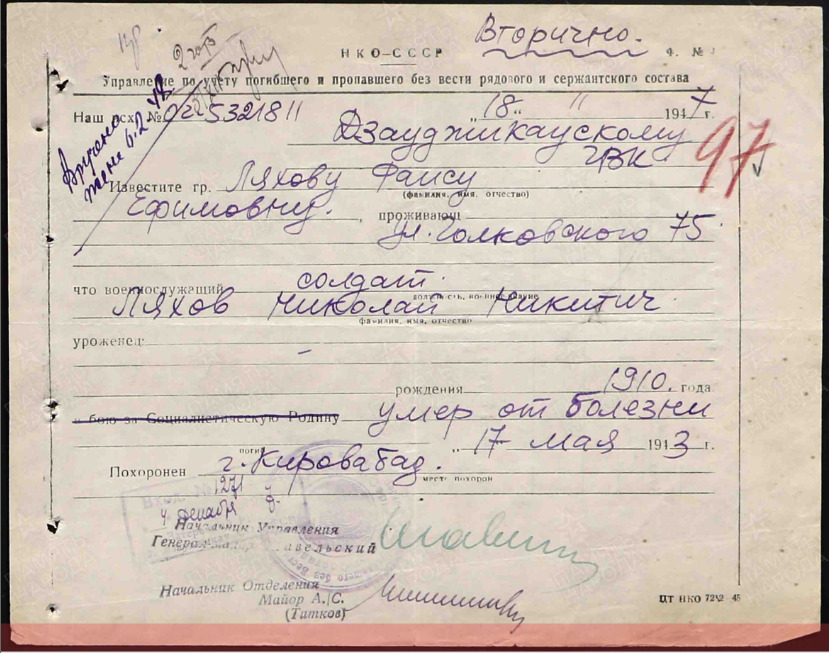 Вторично.
НКО-СССР
Ф. №
Управление по учету погибшего и пропавшего без вести рядового и сержантского состава
Наш исх. №
532181
„18" 11 1947 г.
Дзауджикаускому
ГВК
97
Вручено
жене 6.2.48
Известите гр. Ляхову Фаису
(фамилия, имя, отчество)
Ефимовну. , проживающ
ул. Голковского 75
что военнослужащий солдат.
должность, военное звание
Ляхов Николай Никитич
фамилия, имя, отчество
уроженец: –
рождения 1910. года
в бою за Социалистическую Родину умер от болезни
„17 мая 1943 г.
погиб
Похоронен г. Кировабад.
место похорон
Вход. №
1271
4 декабря
Начальник Управления
Генерал-майор
Начальник Отделения
Майор А./С.
(Титков)
ЦТ НКО 7242-45